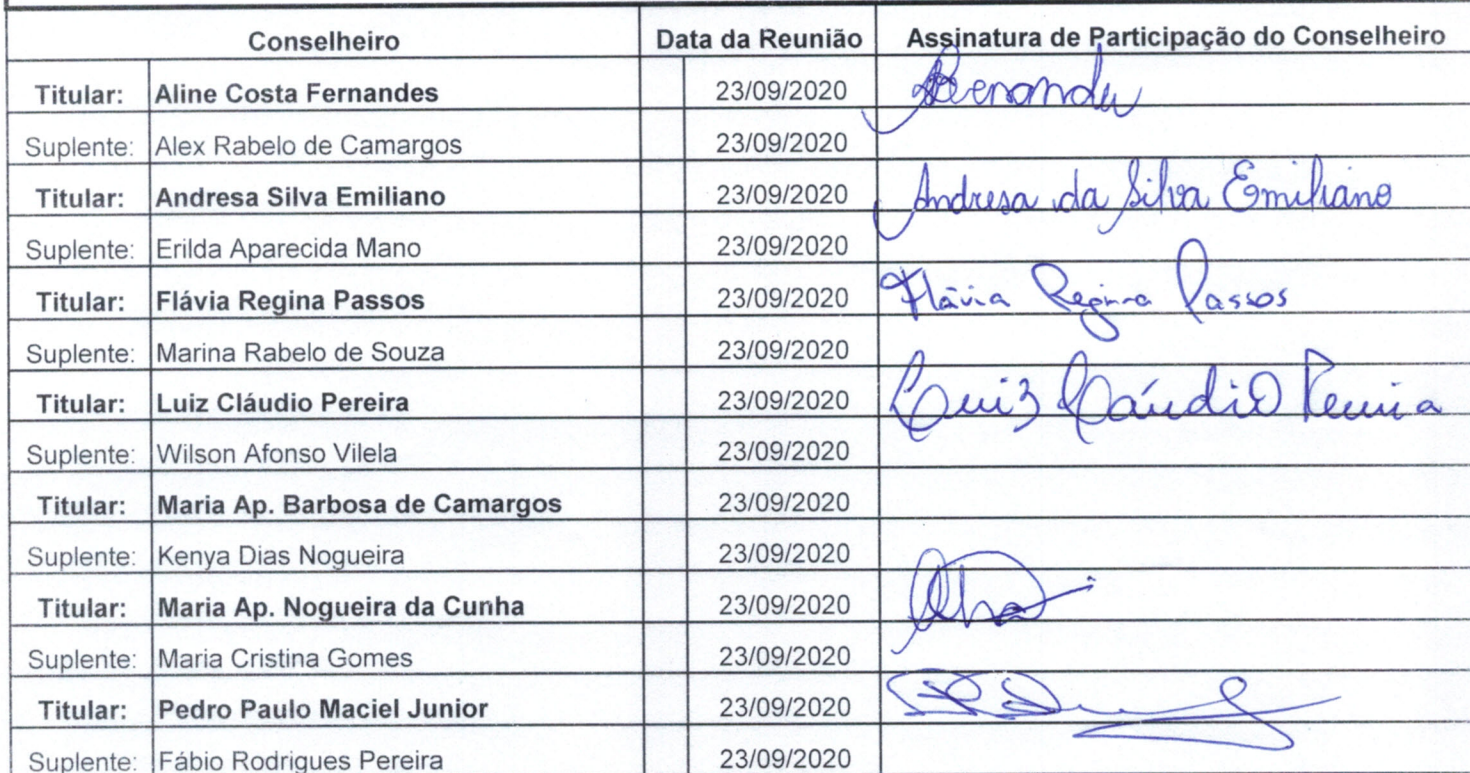 Conselheiro Data da Reunião Assinatura de Participação do Conselheiro
Titular: Aline Costa Fernandes 23/09/2020
Suplente: Alex Rabelo de Camargos 23/09/2020
Titular: Andresa Silva Emiliano 23/09/2020 Andresa da Silva Emiliano
Suplente: Erilda Aparecida Mano 23/09/2020
Titular: Flávia Regina Passos 23/09/2020 Flávia Regina Passos
Suplente: Marina Rabelo de Souza 23/09/2020
Titular: Luiz Cláudio Pereira 23/09/2020 Luiz Cláudio Pereira
Suplente: Wilson Afonso Vilela 23/09/2020
Titular: Maria Ap. Barbosa de Camargos 23/09/2020
Suplente: Kenya Dias Nogueira 23/09/2020
Titular: Maria Ap. Nogueira da Cunha 23/09/2020
Suplente: Maria Cristina Gomes 23/09/2020
Titular: Pedro Paulo Maciel Junior 23/09/2020
Suplente: Fábio Rodrigues Pereira 23/09/2020